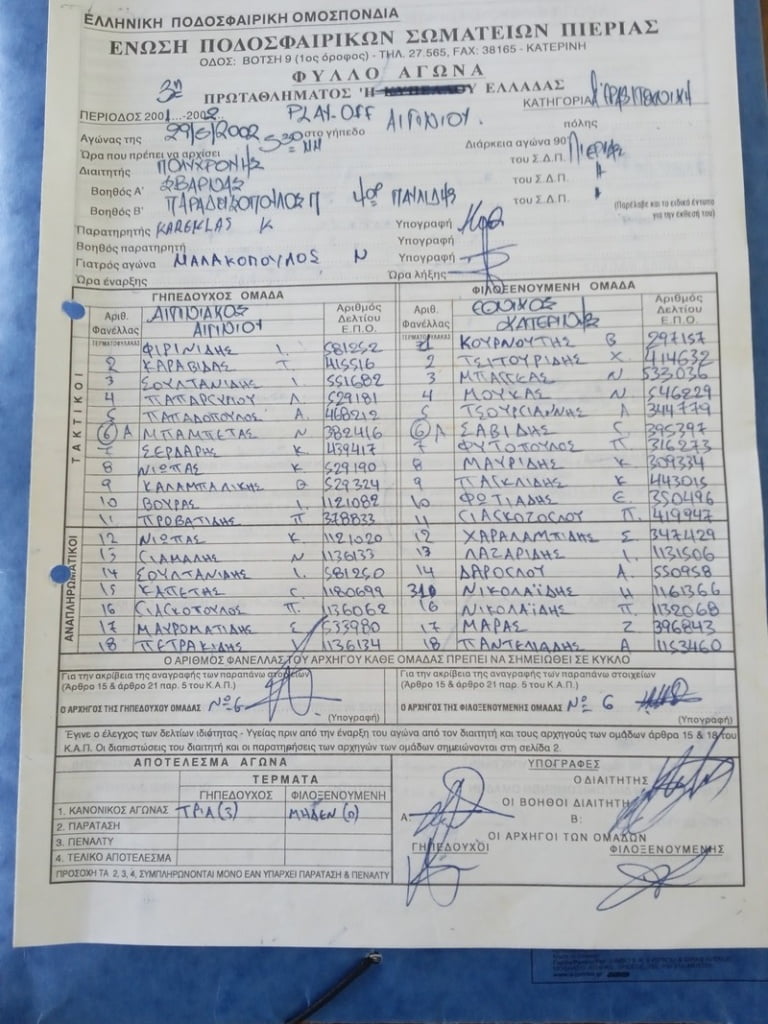 ΕΛΛΗΝΙΚΗ ΠΟΔΟΣΦΑΙΡΙΚΗ ΟΜΟΣΠΟΝΔΙΑ
ΕΝΩΣΗ ΠΟΔΟΣΦΑΙΡΙΚΩΝ ΣΩΜΑΤΕΙΩΝ ΠΙΕΡΙΑΣ
ΟΔΟΣ: ΒΟΤΣΗ 9 (1ος όροφος) - ΤΗΛ. 27.565, FAX: 38165 - ΚΑΤΕΡΙΝΗ
ΦΥΛΛΟ ΑΓΩΝΑ
3η ΠΡΩΤΑΘΛΗΜΑΤΟΣ Ή ΚΥΠΕΛΛΟΥ ΕΛΛΑΔΑΣ
ΠΕΡΙΟΔΟΣ 2001...-2002 PLAY-OFF ΚΑΤΗΓΟΡΙΑ
Αγώνας της 29/5/2002 στο γήπεδο ΑΙΓΙΝΙΟΥ πόλης
Ώρα που πρέπει να αρχίσει 530 ΜΜ Διάρκεια αγώνα 90'
Διαιτητής ΠΟΛΥΧΡΟΝΗΣ του Σ.Δ.Π. ΠΙΕΡΙΑΣ
Βοηθός Α' ΣΒΑΡΝΑΣ του Σ.Δ.Π.
Βοηθός Β' ΠΑΡΑΔΕΙΣΟΠΟΥΛΟΣ Π 4ος ΠΑΥΛΙΔΗΣ του Σ.Δ.Π.
(Παρέλαβε και το ειδικό έντυπο για την έκθεσή του)
Παρατηρητής ΚΑΡΕΚΛΑΣ Κ Υπογραφή
Βοηθός παρατηρητή Υπογραφή
Γιατρός αγώνα ΜΑΛΑΚΟΠΟΥΛΟΣ Ν Υπογραφή
Ώρα έναρξης Ώρα λήξης
ΓΗΠΕΔΟΥΧΟΣ ΟΜΑΔΑ ΦΙΛΟΞΕΝΟΥΜΕΝΗ ΟΜΑΔΑ
Αριθ. Φανέλλας ΑΙΓΙΝΙΑΚΟΣ ΑΙΓΙΝΙΟΥ Αριθμός Δελτίου Ε.Π.Ο. Αριθ. Φανέλλας ΕΘΝΙΚΟΣ ΚΑΤΕΡΙΝΗΣ Αριθμός Δελτίου Ε.Π.Ο.
ΤΑΚΤΙΚΟΙ
ΤΕΡΜΑΤΟΦΥΛΑΚΑΣ ΦΙΡΙΝΙΔΗΣ Ι. 581252 ΤΕΡΜΑΤΟΦΥΛΑΚΑΣ ΚΟΥΡΝΟΥΤΗΣ Β 297157
2 ΚΑΡΑΒΙΔΑΣ Τ. 415516 2 ΤΣΙΤΟΥΡΙΔΗΣ Χ. 414632
3 ΣΟΥΛΤΑΝΙΔΗΣ Ι. 551682 3 Ν 533036
4 Λ. 529181 4 ΜΟΥΚΑΣ Ν. 546229
5 ΠΑΠΑΔΟΠΟΥΛΟΣ Α. 468212 5 Λ 344779
6 Α ΜΠΑΜΠΕΤΑΣ Ν 382416 6 Α ΣΑΒΙΔΗΣ 395397
7 ΣΕΡΔΑΡΗΣ Κ. 439417 7 ΦΥΤΟΠΟΥΛΟΣ Π 316273
8 ΝΙΩΠΑΣ Κ 529190 8 ΜΑΥΡΙΔΗΣ Κ 309334
9 ΚΑΛΑΜΠΑΛΙΚΗΣ Θ 529324 9 Κ 443015
10 ΒΟΥΡΑΣ 1121082 10 ΦΩΤΙΑΔΗΣ 350496
11 ΠΡΟΒΑΤΙΔΗΣ Π 378833 11 Π. 419947
ΑΝΑΠΛΗΡΩΜΑΤΙΚΟΙ
12 ΝΙΩΠΑΣ Κ. 1121020 12 ΧΑΡΑΛΑΜΠΙΔΗΣ Σ 347429
13 Ν 1136133 13 ΛΑΖΑΡΙΔΗΣ Ι. 1131506
14 ΣΟΥΛΤΑΝΙΔΗΣ Ι. 581250 14 Α. 550958
15 ΚΑΠΕΤΗΣ 1180699 ΝΙΚΟΛΑΪΔΗΣ Η 1161366
16 Π. 1136062 16 ΝΙΚΟΛΑΪΔΗΣ Π. 1132068
17 ΜΑΥΡΟΜΑΤΙΔΗΣ Σ 533980 17 ΜΑΡΑΣ Ζ 396843
18 ΠΕΤΡΑΚΙΔΗΣ 1136134 18 ΠΑΝΤΕΛΙΑΔΗΣ Α 1153460
Ο ΑΡΙΘΜΟΣ ΦΑΝΕΛΛΑΣ ΤΟΥ ΑΡΧΗΓΟΥ ΚΑΘΕ ΟΜΑΔΑΣ ΠΡΕΠΕΙ ΝΑ ΣΗΜΕΙΩΘΕΙ ΣΕ ΚΥΚΛΟ
Για την ακρίβεια της αναγραφής των παραπάνω στοιχείων Για την ακρίβεια της αναγραφής των παραπάνω στοιχείων
(Άρθρο 15 & άρθρο 21 παρ. 5 του Κ.Α.Π.) (Άρθρο 15 & άρθρο 21 παρ. 5 του Κ.Α.Π.)
Ο ΑΡΧΗΓΟΣ ΤΗΣ ΓΗΠΕΔΟΥΧΟΥ ΟΜΑΔΑΣ Νο 6 Ο ΑΡΧΗΓΟΣ ΤΗΣ ΦΙΛΟΞΕΝΟΥΜΕΝΗΣ ΟΜΑΔΑΣ Νο 6
(Υπογραφή) (Υπογραφή)
Έγινε ο έλεγχος των δελτίων ιδιότητας - Υγείας πριν από την έναρξη του αγώνα από τον διαιτητή και τους αρχηγούς των ομάδων άρθρα 15 & 18 του
Κ.Α.Π. Οι διαπιστώσεις του διαιτητή και οι παρατηρήσεις των αρχηγών των ομάδων σημειώνονται στη σελίδα 2.
ΑΠΟΤΕΛΕΣΜΑ ΑΓΩΝΑ ΥΠΟΓΡΑΦΕΣ
ΤΕΡΜΑΤΑ Ο ΔΙΑΙΤΗΤΗΣ
ΓΗΠΕΔΟΥΧΟΣ ΦΙΛΟΞΕΝΟΥΜΕΝΗ ΟΙ ΒΟΗΘΟΙ ΔΙΑΙΤΗΤΗ
1. ΚΑΝΟΝΙΚΟΣ ΑΓΩΝΑΣ ΤΡΙΑ (3) ΜΗΔΕΝ (0) Α: Β:
2. ΠΑΡΑΤΑΣΗ ΟΙ ΑΡΧΗΓΟΙ ΤΩΝ ΟΜΑΔΩΝ
3. ΠΕΝΑΛΤΥ ΓΗΠΕΔΟΥΧΟΙ ΦΙΛΟΞΕΝΟΥΜΕΝΗΣ
4. ΤΕΛΙΚΟ ΑΠΟΤΕΛΕΣΜΑ
ΠΡΟΣΟΧΗ ΤΑ 2, 3, 4, ΣΥΜΠΛΗΡΩΝΟΝΤΑΙ ΜΟΝΟ ΕΑΝ ΥΠΑΡΧΕΙ ΠΑΡΑΤΑΣΗ & ΠΕΝΑΛΤΥ